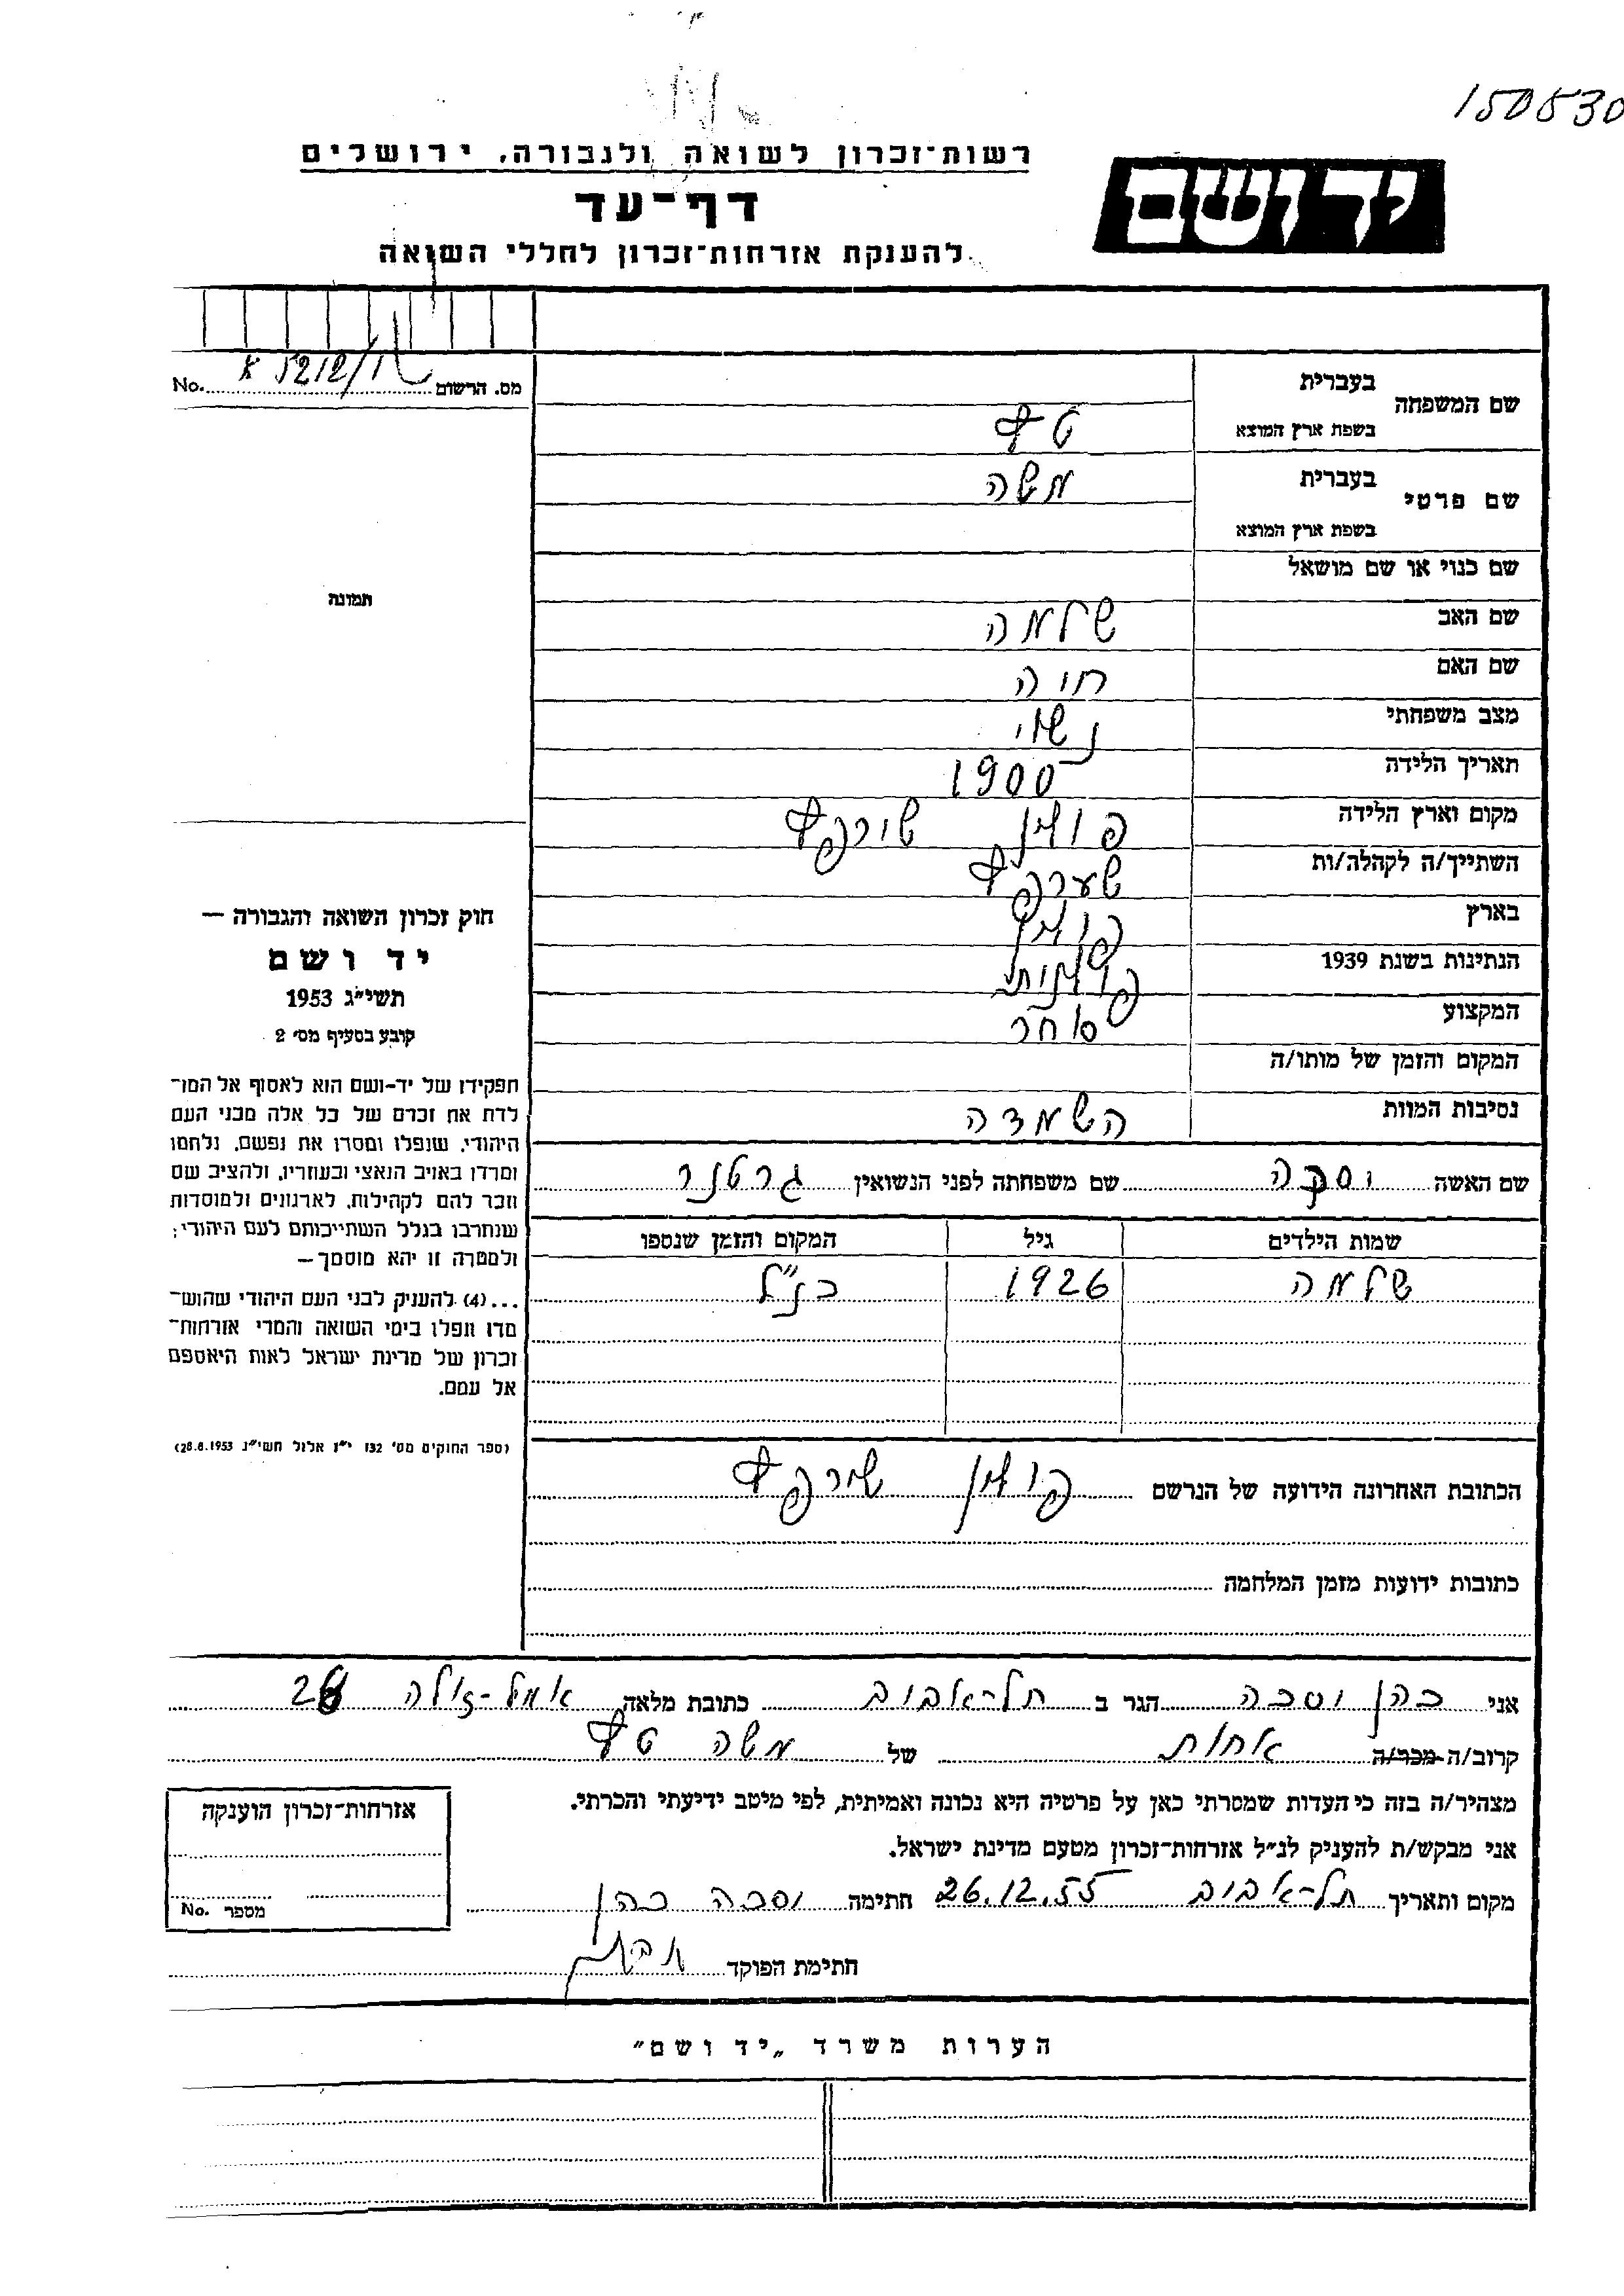 150530
רשות־זכרון לשואה ולגבורה, ירושלים
יד ושם
דף־עד
להענקת אזרחות־זכרון לחללי השואה
מס. הרשום No.
שם המשפחה
בעברית
בשפת ארץ המוצא
שם פרטי
בעברית משה
בשפת ארץ המוצא
שם כנוי או שם מושאל
שם האב שלמה
שם האם חוה
מצב משפחתי נשוי
תאריך הלידה 1900
מקום וארץ הלידה פולין
השתייך/ה לקהלה/ות
בארץ פולין
הנתינות בשנת 1939 פולנית
המקצוע סוחר
המקום והזמן של מותו/ה
נסיבות המוות השמדה
שם האשה שם משפחתה לפני הנשואין גרטנר
שמות הילדים גיל המקום והזמן שנספו
שלמה 1926 כנ"ל
הכתובת האחרונה הידועה של הנרשם פולין
כתובות ידועות מזמן המלחמה
אני כהן הגר ב תל-אביב כתובת מלאה אמיל-זולה
קרוב/ה מכר/ה אחות של משה
מצהיר/ה בזה כי העדות שמסרתי כאן על פרטיה היא נכונה ואמיתית, לפי מיטב ידיעתי והכרתי.
אני מבקש/ת להעניק לנ"ל אזרחות־זכרון מטעם מדינת ישראל.
מקום ותאריך תל-אביב 26.12.55 חתימה כהן
חתימת הפוקד
תמונה
חוק זכרון השואה והגבורה —
יד ושם
תשי"ג 1953
קובע בסעיף מס׳ 2
תפקידו של יד-ושם הוא לאסוף אל המו־
לדת את זכרם של כל אלה מבני העם
היהודי, שנפלו ומסרו את נפשם, נלחמו
ומרדו באויב הנאצי ובעוזריו, ולהציב שם
וזכר להם לקהילות, לארגונים ולמוסדות
שנחרבו בגלל השתייכותם לעם היהודי;
ולמטרה זו יהא מוסמך —
...(4) להעניק לבני העם היהודי שהוש־
מדו ונפלו בימי השואה והמרי אזרחות־
זכרון של מדינת ישראל לאות היאספם
אל עמם.
(ספר החוקים מס׳ 132 י"ז אלול תשי"ג 28.8.1953)
אזרחות־זכרון הוענקה
מספר No.
הערות משרד „יד ושם"